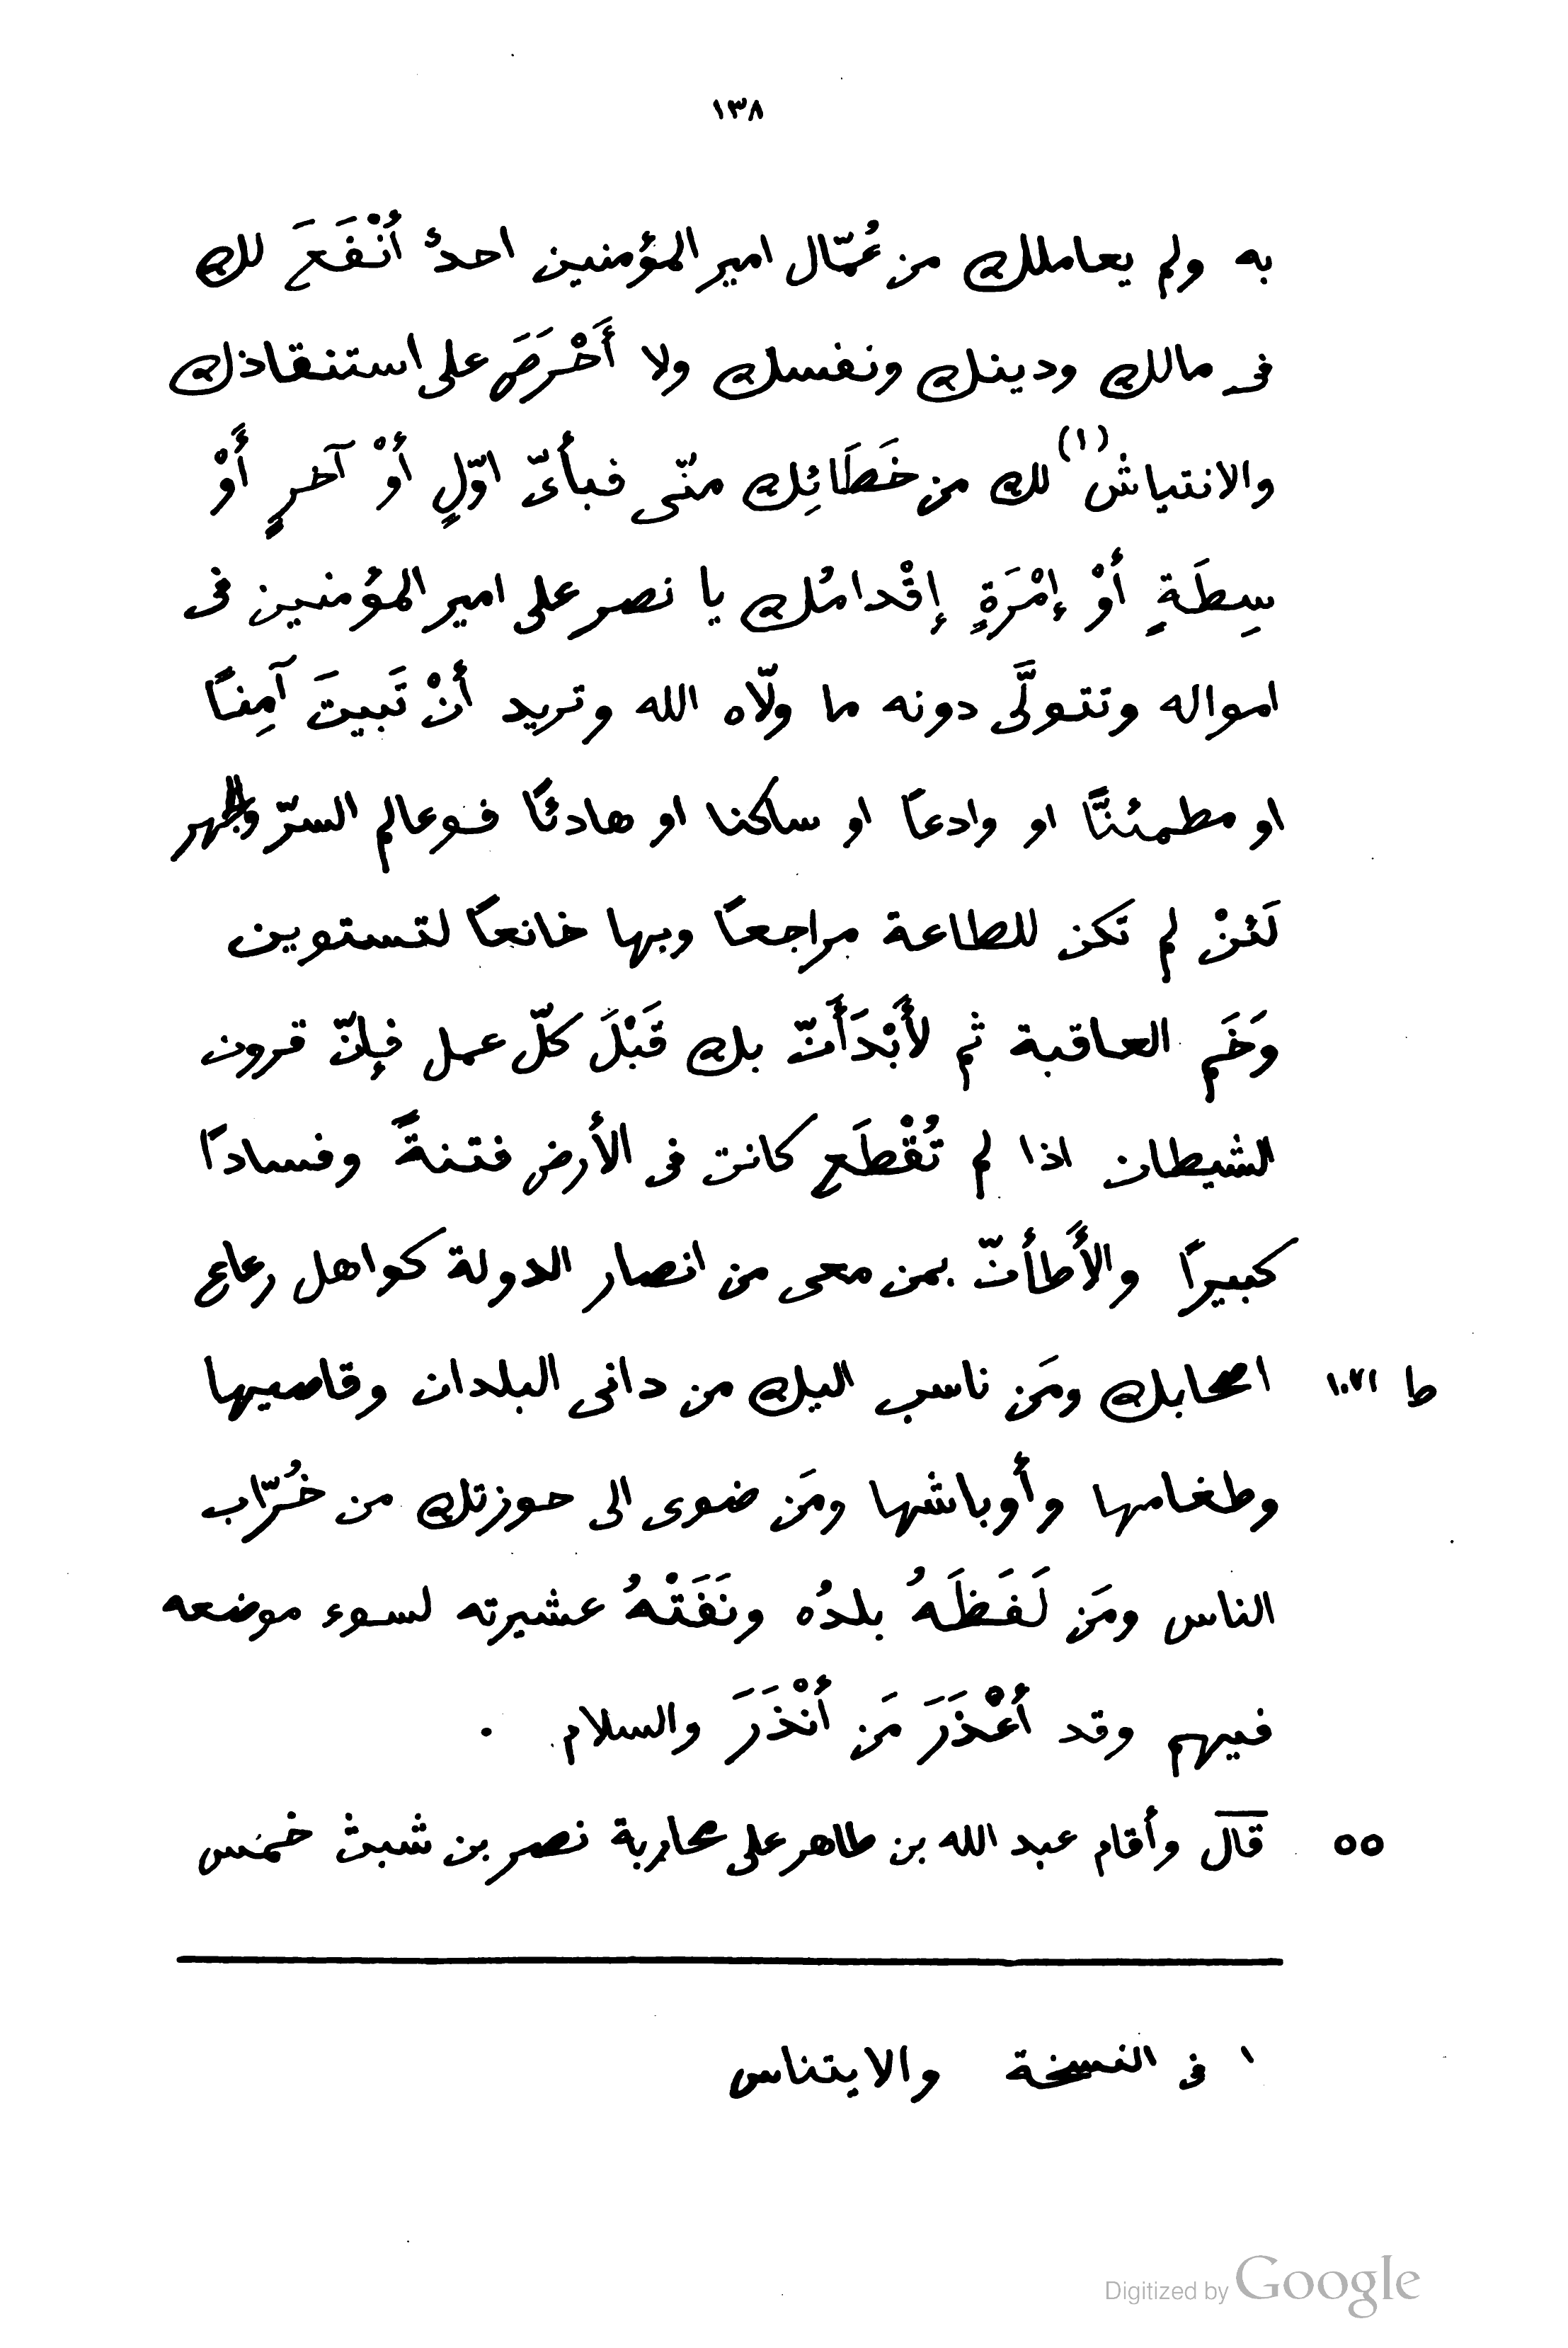 ١٣٨
به ولم يعاملك من عُمّال امير المؤمنين احدٌ أنْفَعَ لك
فى مالك ودينك ونفسك ولا أَحْرَصَ على استنقاذك
والانتياش (١) لك من خَطَائِك منّى فبأىّ اوّلٍ أوْ آخرٍ أَوْ
سِطَةٍ أوْ إمْرَةٍ إقْدامُك يا نصر على امير المؤمنين فى
امواله وتتولَّى دونه ما ولّاه الله وتريد أنْ تَبيتَ آمِنًا
او مطمئنًّا او وادعًا او ساكنا او هادئًا فوعالم السرّ والجهر
لَئنْ لم تَكن للطاعة مراجعًا وبها خانعًا لتستوبن
وَخَم العاقبة ثم لأَبْدَأَنّ بك قَبْلَ كلّ عمل فإنّ قرون
الشيطان اذا لم تُقْطَع كانت فى الأرض فتنةً وفسادًا
كبيرًا والأَطأنّ بمن معى من انصار الدولة كواهل رعاع
اصحابك ومَن ناسب اليك من دانى البلدان وقاصيها
ط ١٠٧١
وطغامها وأوباشها ومَن ضوى الى حوزتك من خُرّاب
الناس ومَن لَفَظَهُ بلدُه ونَفَتْهُ عشيرته لسوء موضعه
فيهم وقد أعْذَرَ مَن أنْذَرَ والسلام .
٥٥ قال وأقام عبد الله بن طاهر على محاربة نصر بن شبث خمس
١ فى النسخة والايتناس
Digitized by Google